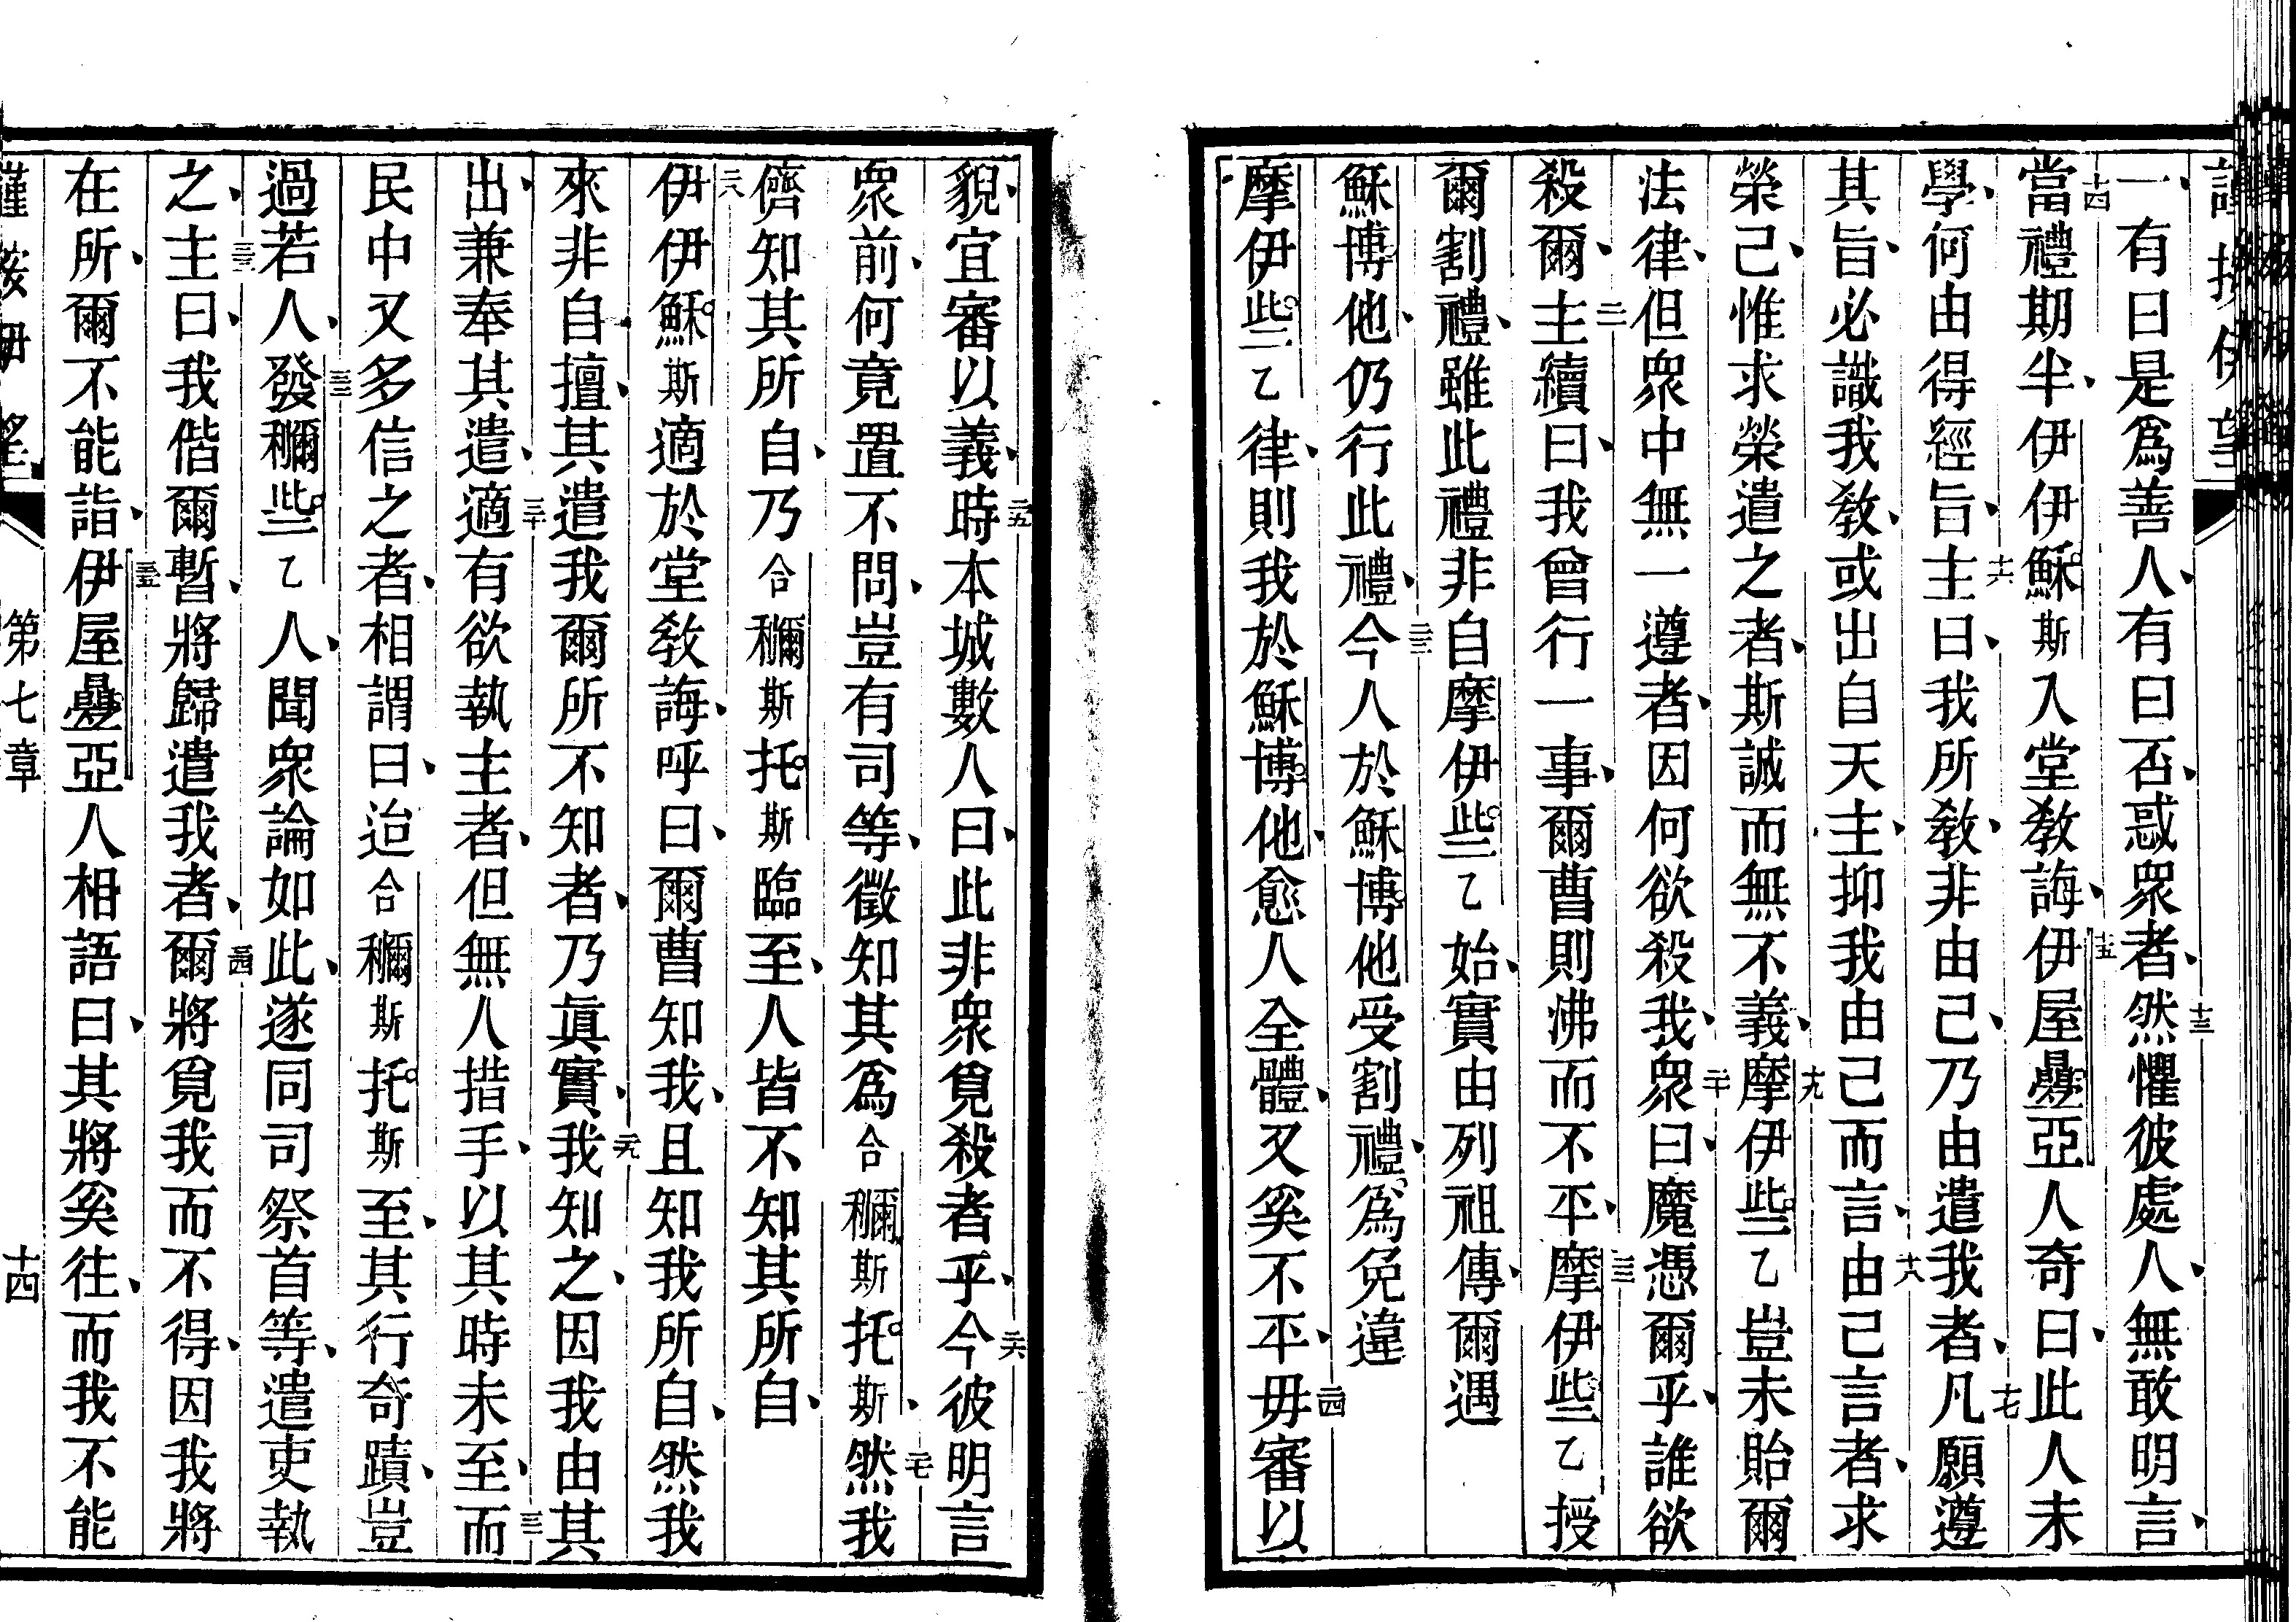 一有曰是爲善人有曰否惑衆者十三然懼彼處人無敢明言
十四當禮期半伊伊穌斯入堂教誨十五伊屋疊亞人奇曰此人未
學何由得經旨十六主曰我所教非由己乃由遣我者十七凡願遵
其旨必識我教或出自天主抑我由己而言十八由己言者求
榮己惟求榮遣之者斯誠而無不義十九摩伊些乙豈未貽爾
法律但衆中無一遵者因何欲殺我二十衆曰魔憑爾乎誰欲
殺爾二一主續曰我曾行一事爾曹則沸而不平二二摩伊些乙授
爾割禮雖此禮非自摩伊些乙始實由列祖傳爾遇
穌博他仍行此禮二三今人於穌博他受割禮爲免違
摩伊些乙律則我於穌博他愈人全體又奚不平二四毋審以
貌宜審以義二五時本城數人曰此非衆覓殺者乎二六今彼明言
衆前何竟置不問豈有司等徵知其爲合穪斯托斯二七然我
儕知其所自乃合穪斯托斯臨至人皆不知其所自
二八伊伊穌斯適於堂教誨呼曰爾曹知我且知我所自然我
來非自擅其遣我爾所不知者乃眞實二九我知之因我由其
出兼奉其遣三十適有欲執主者但無人措手以其時未至三一而
民中又多信之者相謂曰迨合穪斯托斯至其行奇蹟豈
過若人三二發穪些乙人聞衆論如此遂同司祭首等遣吏執
之三三主曰我偕爾暫將歸遣我者三四爾將覓我而不得因我將
在所爾不能詣三五伊屋疊亞人相語曰其將奚往而我不能
第七章 十四